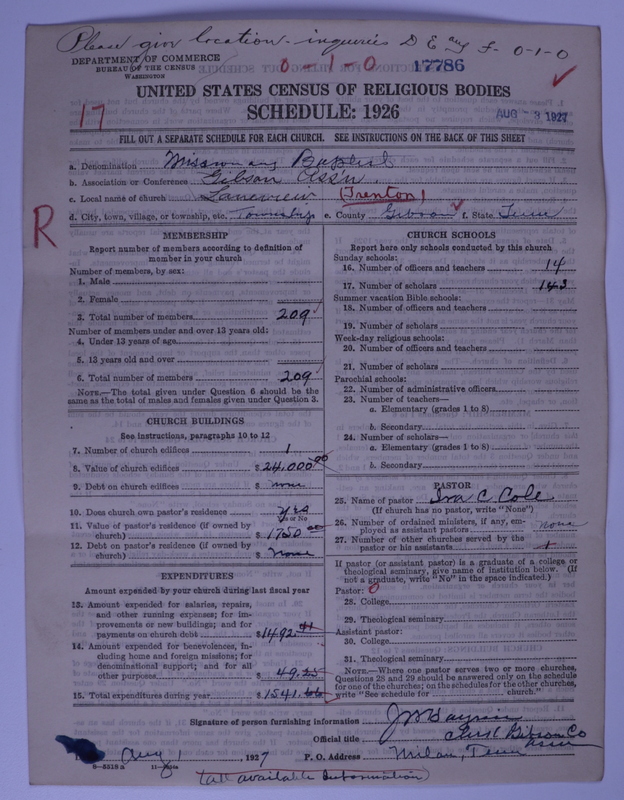 Please give location - inquiries D E aug 5- 0-1-0
DEPARTMENT OF COMMERCE
BUREAU OF THE CENSUS
WASHINGTON
0-1-0
17786
UNITED STATES CENSUS OF RELIGIOUS BODIES
SCHEDULE: 1926
17
AUG - 3 1927
FILL OUT A SEPARATE SCHEDULE FOR EACH CHURCH. SEE INSTRUCTIONS ON THE BACK OF THIS SHEET
a. Denomination Missionary Baptist
b. Association or Conference Gibson Ass'n
c. Local name of church Laneview (Trenton)
d. City, town, village, or township, etc. Township e. County Gibson f. State Tenn
R
MEMBERSHIP
Report number of members according to definition of member in your church
Number of members, by sex:
1. Male
2. Female
3. Total number of members 209
Number of members under and over 13 years old:
4. Under 13 years of age
5. 13 years old and over
6. Total number of members 209
NOTE.—The total given under Question 6 should be the same as the total of males and females given under Question 3.
CHURCH BUILDINGS
See instructions, paragraphs 10 to 12
7. Number of church edifices 1
8. Value of church edifices $ 24,000 00
9. Debt on church edifices $ none
10. Does church own pastor's residence yes
Yes or No
11. Value of pastor's residence (if owned by church) $ 1750 00
12. Debt on pastor's residence (if owned by church) $ None
EXPENDITURES
Amount expended by your church during last fiscal year
13. Amount expended for salaries, repairs, and other running expenses; for improvements or new buildings; and for payments on church debt $ 1492 41
14. Amount expended for benevolences, including home and foreign missions; for denominational support; and for all other purposes $ 49.25
15. Total expenditures during year $ 1541.66
CHURCH SCHOOLS
Report here only schools conducted by this church
Sunday schools:
16. Number of officers and teachers 14
17. Number of scholars 143
Summer vacation Bible schools:
18. Number of officers and teachers
19. Number of scholars
Week-day religious schools:
20. Number of officers and teachers
21. Number of scholars
Parochial schools:
22. Number of administrative officers
23. Number of teachers—
a. Elementary (grades 1 to 8)
b. Secondary
24. Number of scholars—
a. Elementary (grades 1 to 8)
b. Secondary
PASTOR
25. Name of pastor Ira C Cole
(If church has no pastor, write "None")
26. Number of ordained ministers, if any, employed as assistant pastors none
27. Number of other churches served by the pastor or his assistants
If pastor (or assistant pastor) is a graduate of a college or theological seminary, give name of institution below. (If not a graduate, write "No" in the space indicated.)
Pastor: 0
28. College
29. Theological seminary
Assistant pastor:
30. College
31. Theological seminary
NOTE.—Where one pastor serves two or more churches, Questions 28 and 29 should be answered only on the schedule for one of the churches; on the schedules for the other churches, write "See schedule for church."
Signature of person furnishing information
Official title Clerk Gibson Co Assn
Aug 1, 1927 P. O. Address Milan, Tenn
(all available information)